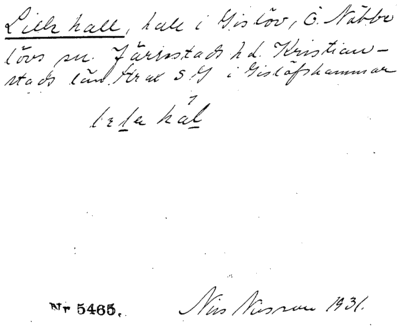 Lille kall, kall i Gislöv, Ö. Nöbbe
lövs sn. Järrestads hd. Kristian-
stads län. Str. S G i Gislöfshammar
kal
Nr 5465. Nils 1931.